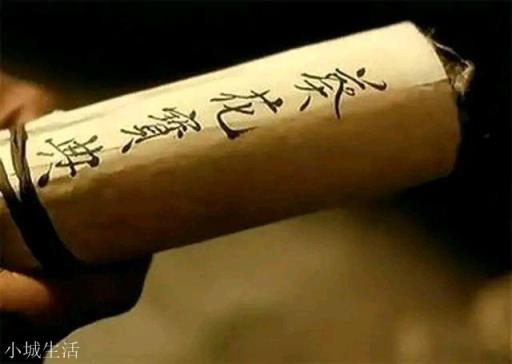 葵花寳典
小城生活